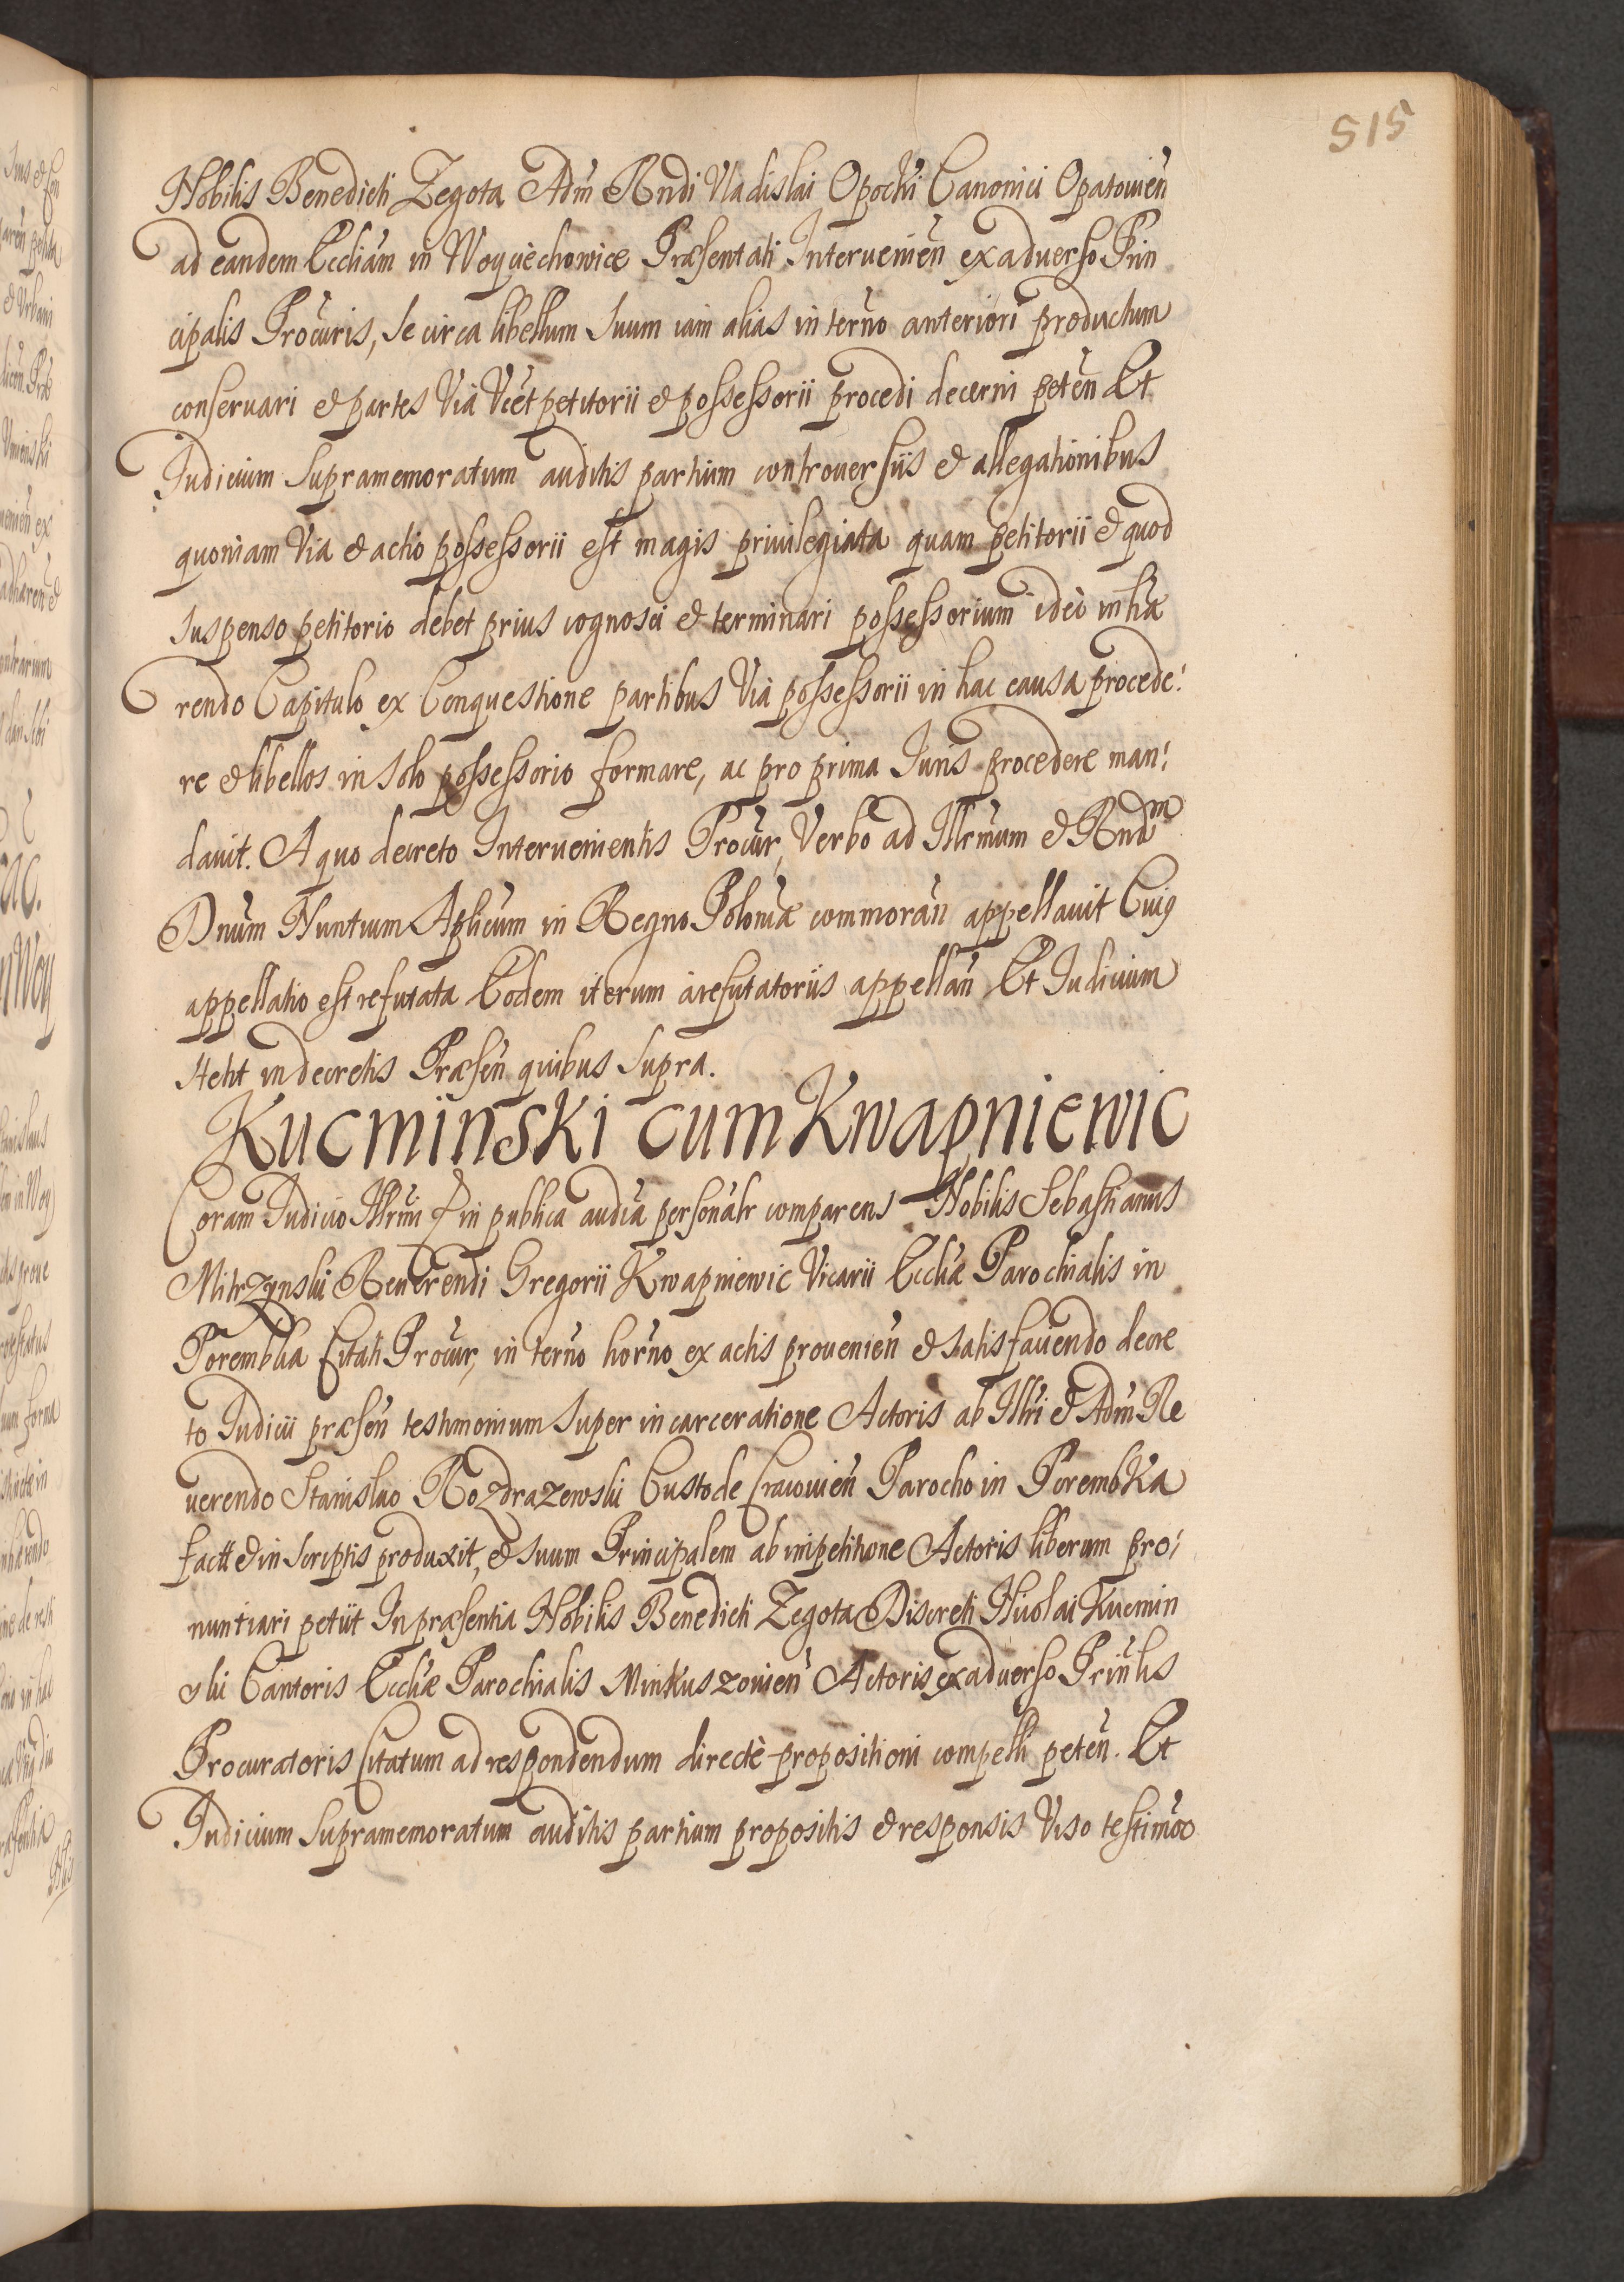 515
Nobilis Benedicti Zegota Adm Rndi Vladislai Opocki Canonici Opatouien
ad eandem Eccliam in Woyciechowice Præsentati Interuenien ex aduerso Prin
cipalis Procuris, se circa libellum suum iam alias in terno anteriori productum
conseruari et partes Via petitorii et possessorii procedi decerni peten Et
Judicium supramemoratum auditis partium controuersiis et allegationibus
quoniam Via et actio possessorii est magis priuilegiata quam petitorii et quod
suspenso petitorio debet prius cognosci et terminari possessorium ideo inhæ
rendo Capitulo ex Conquestione partibus Via possessorii in hac causa procede:
re et libellos in solo possessorio formare, ac pro prima Juris procedere man:
dauit. A quo decreto Interuenientis Procur, Verbo ad Illrmum et Rndm
Dnum Nuntium Aplicum in Regno Poloniæ commoran appellauit Cuius
appellatio est refutata Eodem iterum a refutatoriis appellan Et Judicium
stetit in decretis Præsen quibus supra.
Kucminski cum Kwapniewic
Coram Judicio Illrmi in publica audia personalr comparens Nobilis Sebastianus
Mitrzynski Reuerendi Gregorii Kwapniewic Vicarii Eccliæ Parochialis in
Porembka Citati Procur, in terno horno ex actis prouenien et satisfaciendo decre
to Judicii præsen testimonium super incarceratione Actoris ab Illri et Adm Re
uerendo Stanislao Rozdrazewski Custode Cracouien Parocho in Porembka
factt et in scriptis produxit, et suum Principalem ab inpetitione Actoris liberum pro:
nuntiari petiit In præsentia Nobilis Benedicti Zegota Discreti Nicolai Kucmin
ski Cantoris Eccliæ Parochialis Minkuszouien Actoris ex aduerso Prinlis
Procuratoris Citatum ad respondendum directe propositioni compelli peten. Et
Judicium supramemoratum auditis partium propositis et responsis Viso testimoo